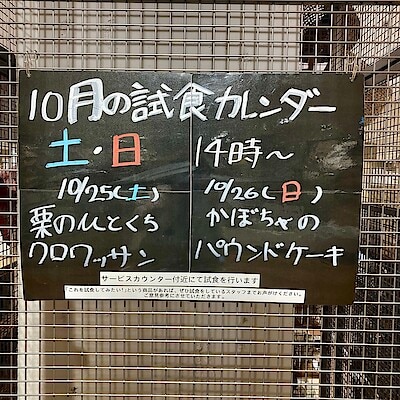 10月の試食カレンダー
土・日 14時〜
10/25(土) 10/26(日)
栗のひとくち かぼちゃの
クロワッサン パウンドケーキ
サービスカウンター付近にて試食を行います
「これを試食してみたい!」という商品があれば、ぜひ試食をしているスタッフまでお声がけください。
ご意見参考にさせていただきます。